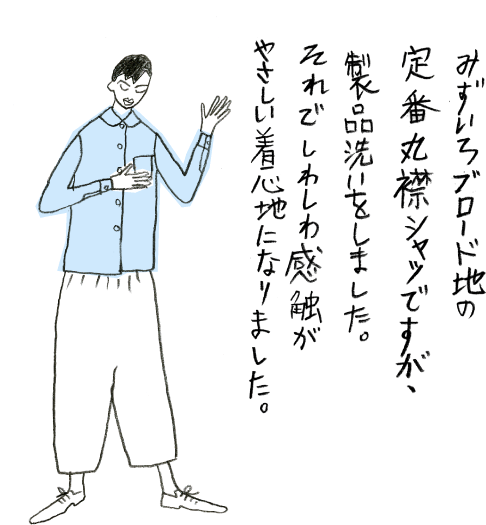 みずいろブロード地の
定番丸襟シャツですが、
製品洗いをしました。
それでしわしわ感触が
やさしい着心地になりました。